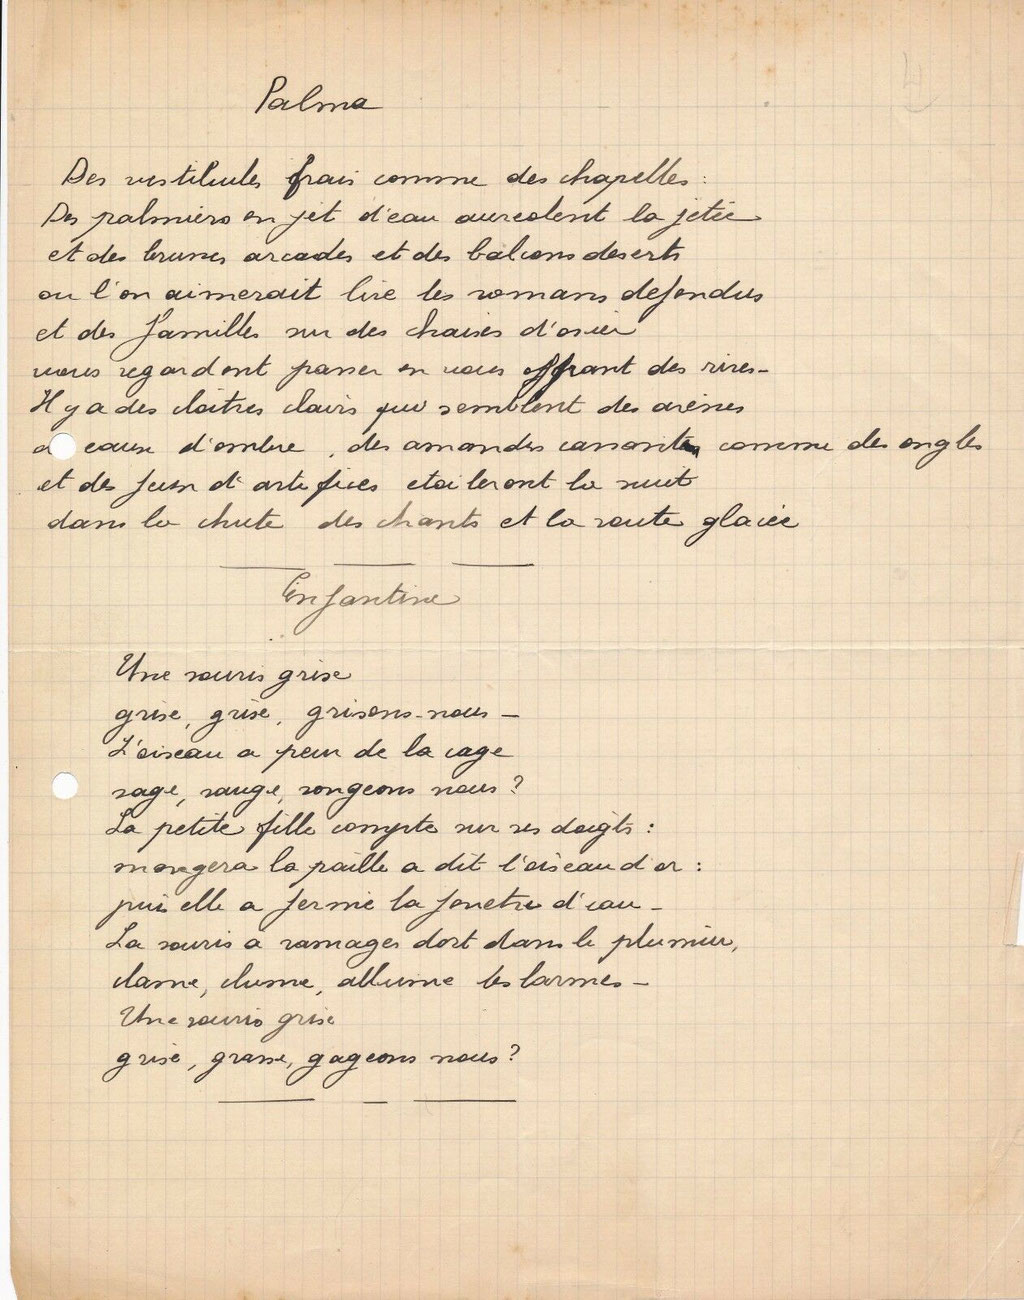 4
Palma
Des vestibules frais comme des chapelles :
Des palmiers en jet d'eau aureolent la jetée
et des brunes arcades et des balcons deserts
ou l'on aimerait lire les romans defendus
et des familles sur des chaises d'osier
vous regardent passer en vous offrant des rires -
Il y a des cloitres clairs qui semblent des arènes
a cause d'ombre, des amandes cassantes comme des ongles
et des feux d'artefices etoileront la nuit
dans la chute des chants et la route glacée
Enfantine
Une souris grise
grise, grise, grisons-nous -
L'oiseau a peur de la cage
rage, rouge, rongeons nous ?
La petite fille compte sur ses doigts :
mangera la paille a dit l'oiseau d'or :
puis elle a fermé la fenetre d'eau -
La souris a ramages dort dans le plumier,
clame, clume, allume les larmes -
Une souris grise
grise, grasse, gageons nous ?